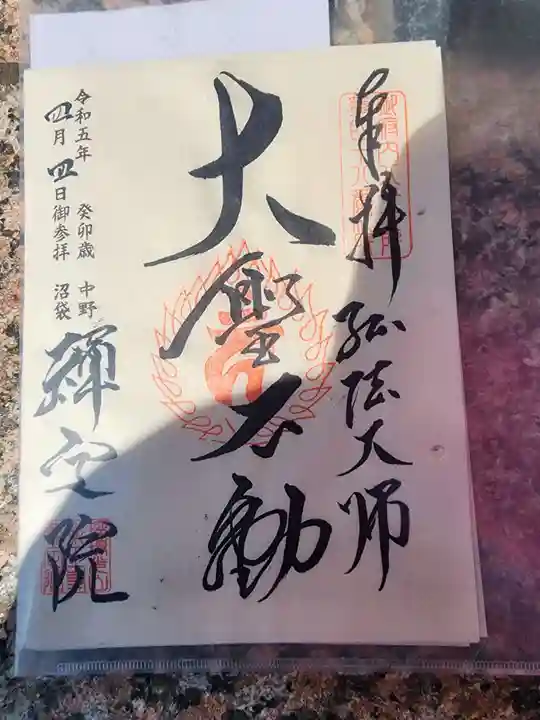 奉拝 弘法大師
大聖不動
令和五年 癸卯歳 中野
四月四日御参拝 沼袋
実相院